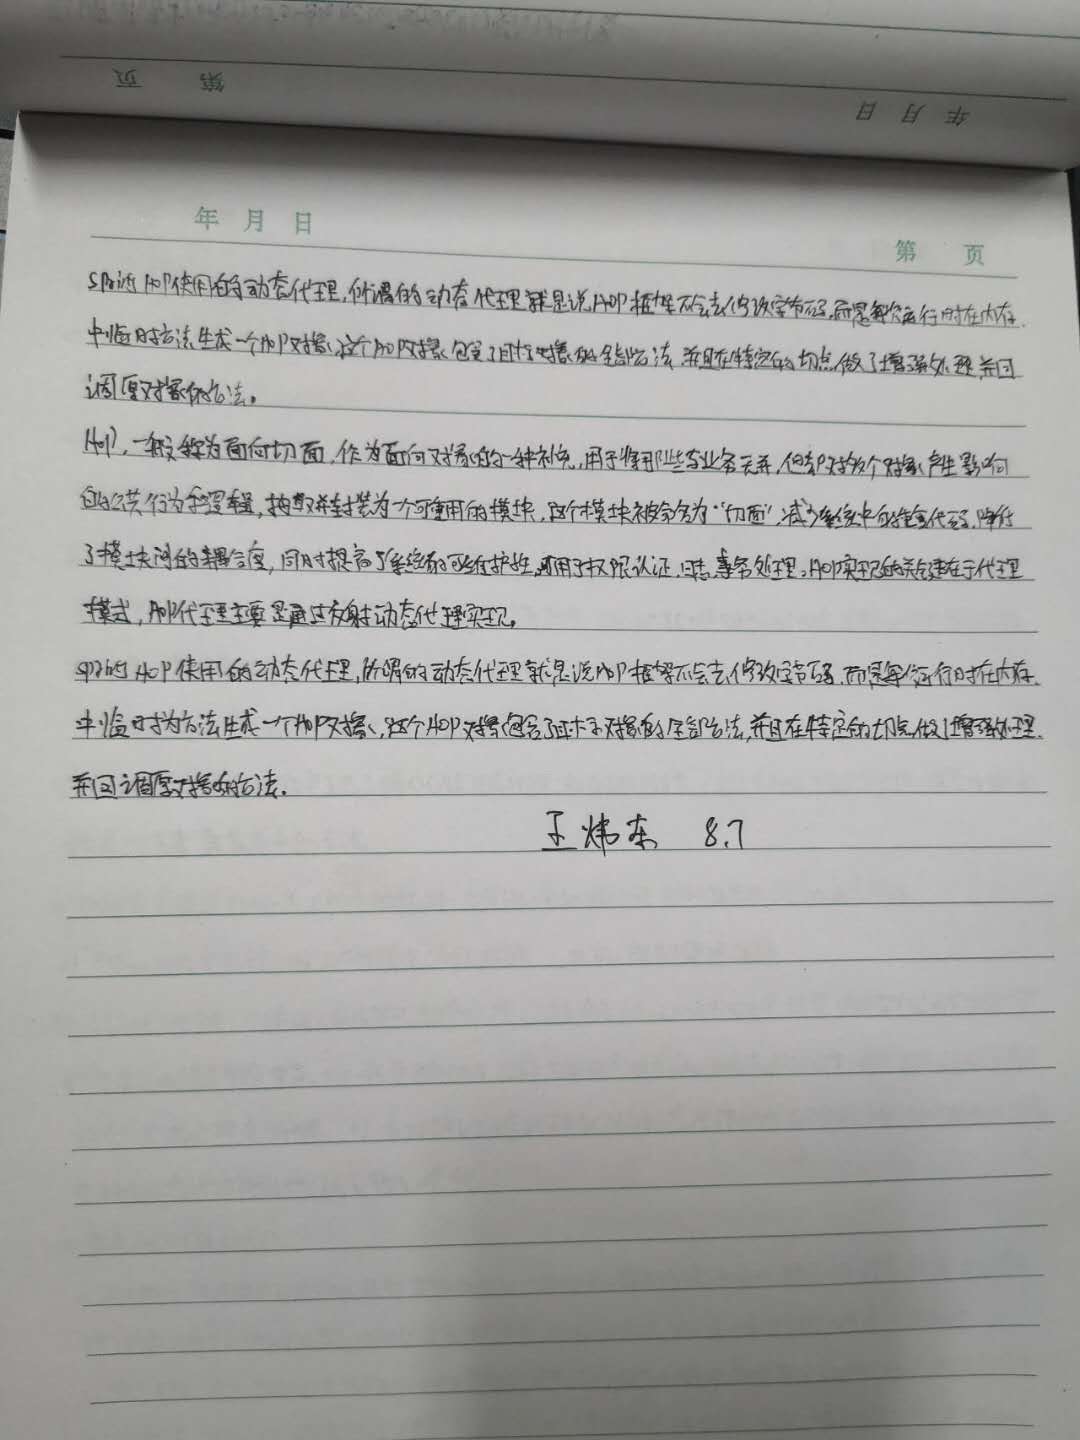 第 页
年 月 日
年 月 日
第 页
Spring AOP使用的动态代理,所谓的动态代理就是说AOP框架不会去修改字节码,而是每次运行时在内存
中临时方法生成一个AOP对象,这个AOP对象包含了目标对象的全部方法,并且在特定的切点做了增强处理,并回
调原对象的方法。
AOP,一般称为面向切面,作为面向对象的一种补充,用于将那些与业务无关,但却对多个对象产生影响
的公共行为和逻辑,抽取并封装为一个可重用的模块,这个模块被命名为“切面”,减少系统中的重复代码,降低
了模块间的耦合度,同时提高了系统的可维护性。可用于权限认证、日志、事务处理。AOP实现的关键在于代理
模式,AOP代理主要是通过反射动态代理实现。
Spring AOP使用的动态代理,所谓的动态代理就是说AOP框架不会去修改字节码,而是每次运行时在内存
中临时为方法生成一个AOP对象,这个AOP对象包含了目标对象的全部方法,并且在特定的切点做了增强处理,
并回调原对象的方法.
王炜东 8.7